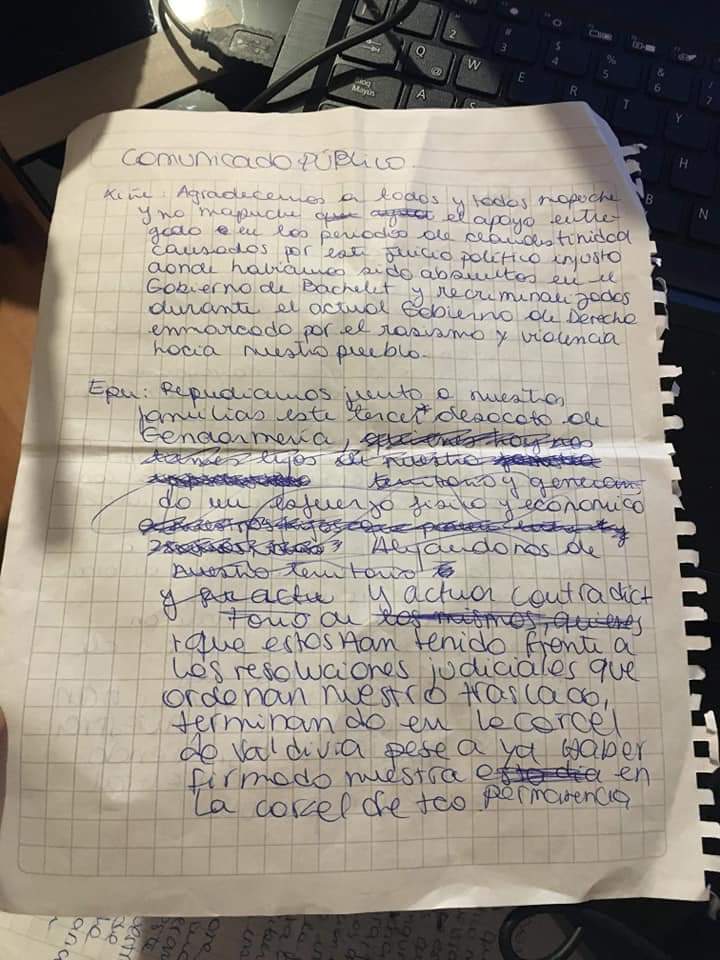 Comunicado Público.
Kiñe: Agradecemos a todos y todas mapuche
y no mapuche que el apoyo entre-
gado en los periodos de clandestinidad
causados por este juicio politico injusto
donde habiamos sido absueltos en el
Gobierno de Bachelet y recriminalizados
durante el actual Gobierno de Derecha
enmarcado por el rasismo y violencia
hacia nuestro pueblo.
Epu: Repudiamos junto a nuestras
familias este tercer desacato de
Gendarmeria, quienes hoy nos
lejos de nuestro
territorio y generan-
do un esfuerzo fisico y economico
Alejandonos de
nuestro territorio
y actuar contradict
torio de los mismos, quienes
que estos Han tenido frente a
Las resoluciones judiciales que
ordenan nuestro traslado,
terminando en la carcel
de Valdivia pese a ya Haber
firmado nuestra estadia en
La carcel de tco. permanencia
Q
@
W
E
R
T
Y
A
S
D
H
B
N
2
#
3
$
4
%
5
&
6
Bloq
Mayús